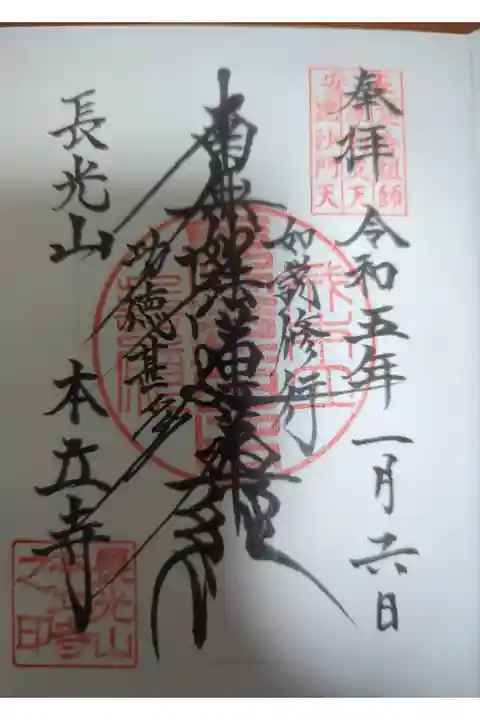 奉拝 令和五年 一月六日
如説修行
南無妙法蓮華経
功徳甚多
長光山 本立寺
毘沙門天
長光山
本立寺
之印